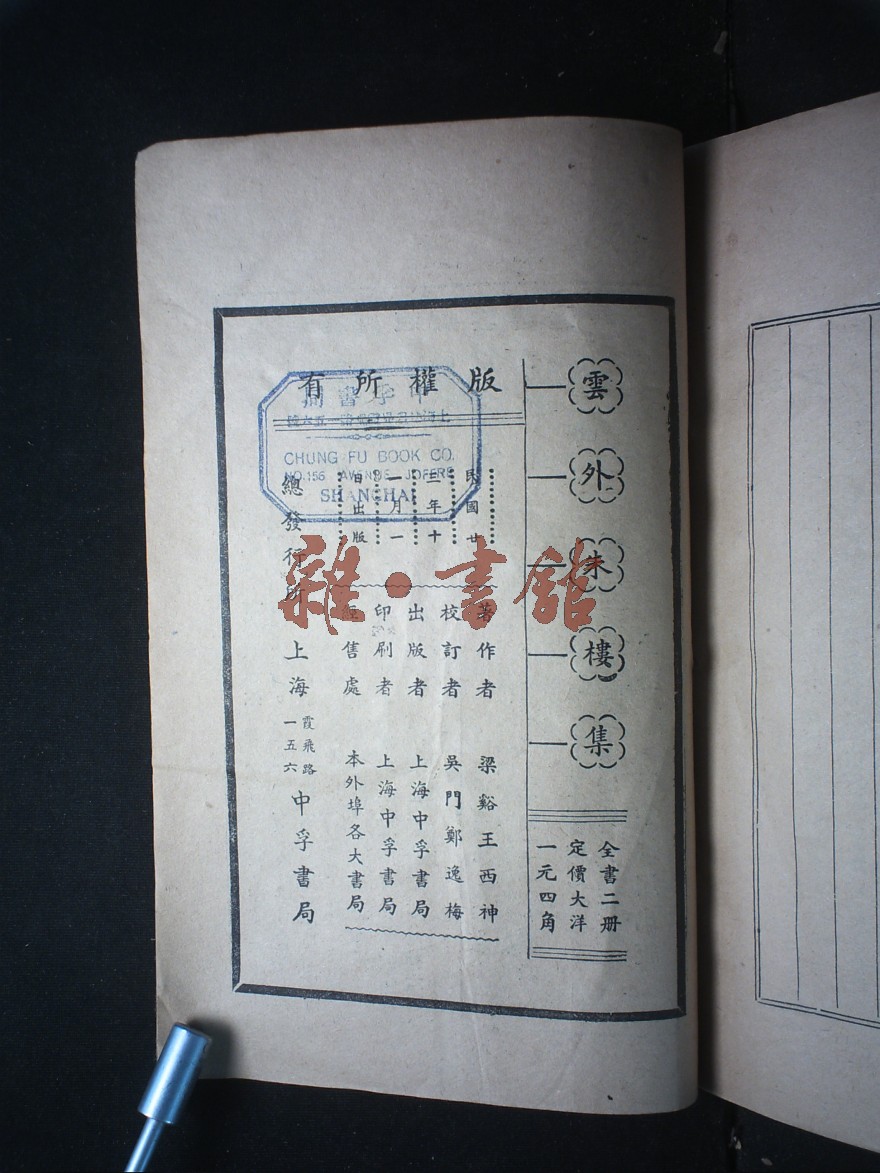 雲外朱樓集
全書二册
定價大洋
一元四角
版權所有
民國廿
三年十
一月一
日出版
著作者 梁谿王西神
校訂者 吳門鄭逸梅
出版者 上海中孚書局
印刷者 上海中孚書局
經售處 本外埠各大書局
總發行所 上海 霞飛路 一五六 中孚書局
中孚書局
CHUNG FU BOOK CO.
NO.156 AVENUE JOFFRE
SHANGHAI
雜·書館